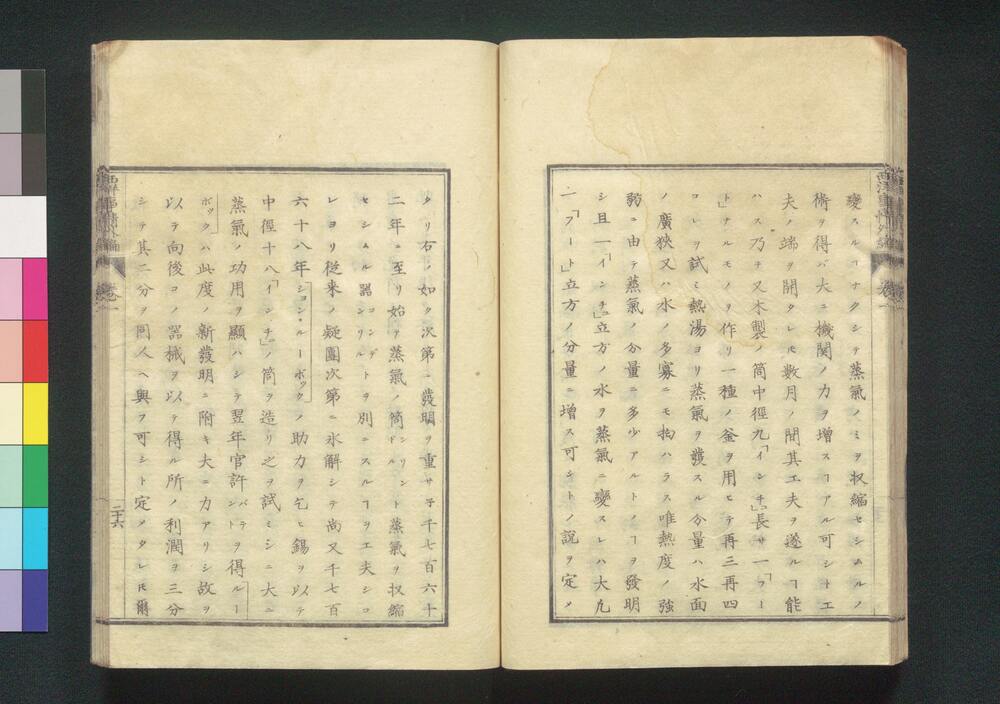 變スルヿナクシテ蒸氣ノミヲ収縮セシムルノ
術ヲ得バ大ニ機関ノ力ヲ増スヿアル可シトエ
夫ノ端ヲ開タレ𪜈数月ノ間其工夫ヲ遂ルヿ能
ハス乃チ又木製ノ筒中徑九「インチ」長サ一「フー
ト」ナルモノヲ作リ一種ノ釜ヲ用ヒテ再三再四
コレヲ試ミ熱湯ヨリ蒸氣ヲ發スル分量ハ水面
ノ廣狭又ハ水ノ多寡ニモ拘ハラス唯熱度ノ強
弱ニ由テ蒸氣ノ分量ニ多少アルトノヿヲ發明
シ且一「インチ」立方ノ水ヲ蒸氣ニ變スレハ大凡
一「フート」立方ノ分量ニ増ス可シトノ説ヲ定メ
タリ右ノ如ク次第ニ發明ヲ重サ子千七百六十
二年ニ至リ始テ蒸氣ノ筒シリンドルト蒸氣ヲ収縮
セシムル器コンデンソルトヲ別ニスルヿヲ工夫シコ
レヨリ従来ノ疑團次第ニ氷解シテ尚又千七百
六十八年ジョン・ルーボックノ助力ヲ乞ヒ錫ヲ以テ
中徑十八「インチ」ノ筒ヲ造リ之ヲ試ミシニ大ニ
蒸氣ノ功用ヲ顯ハシテ翌年官許パテントヲ得ルー
ボックハ此度ノ新發明ニ附キ大ニ力アリシ故ヲ
以テ向後コノ器械ヲ以テ得ル所ノ利潤ヲ三分
シテ其二分ヲ同人ヘ與フ可シト定メタレ𪜈爾
二十六